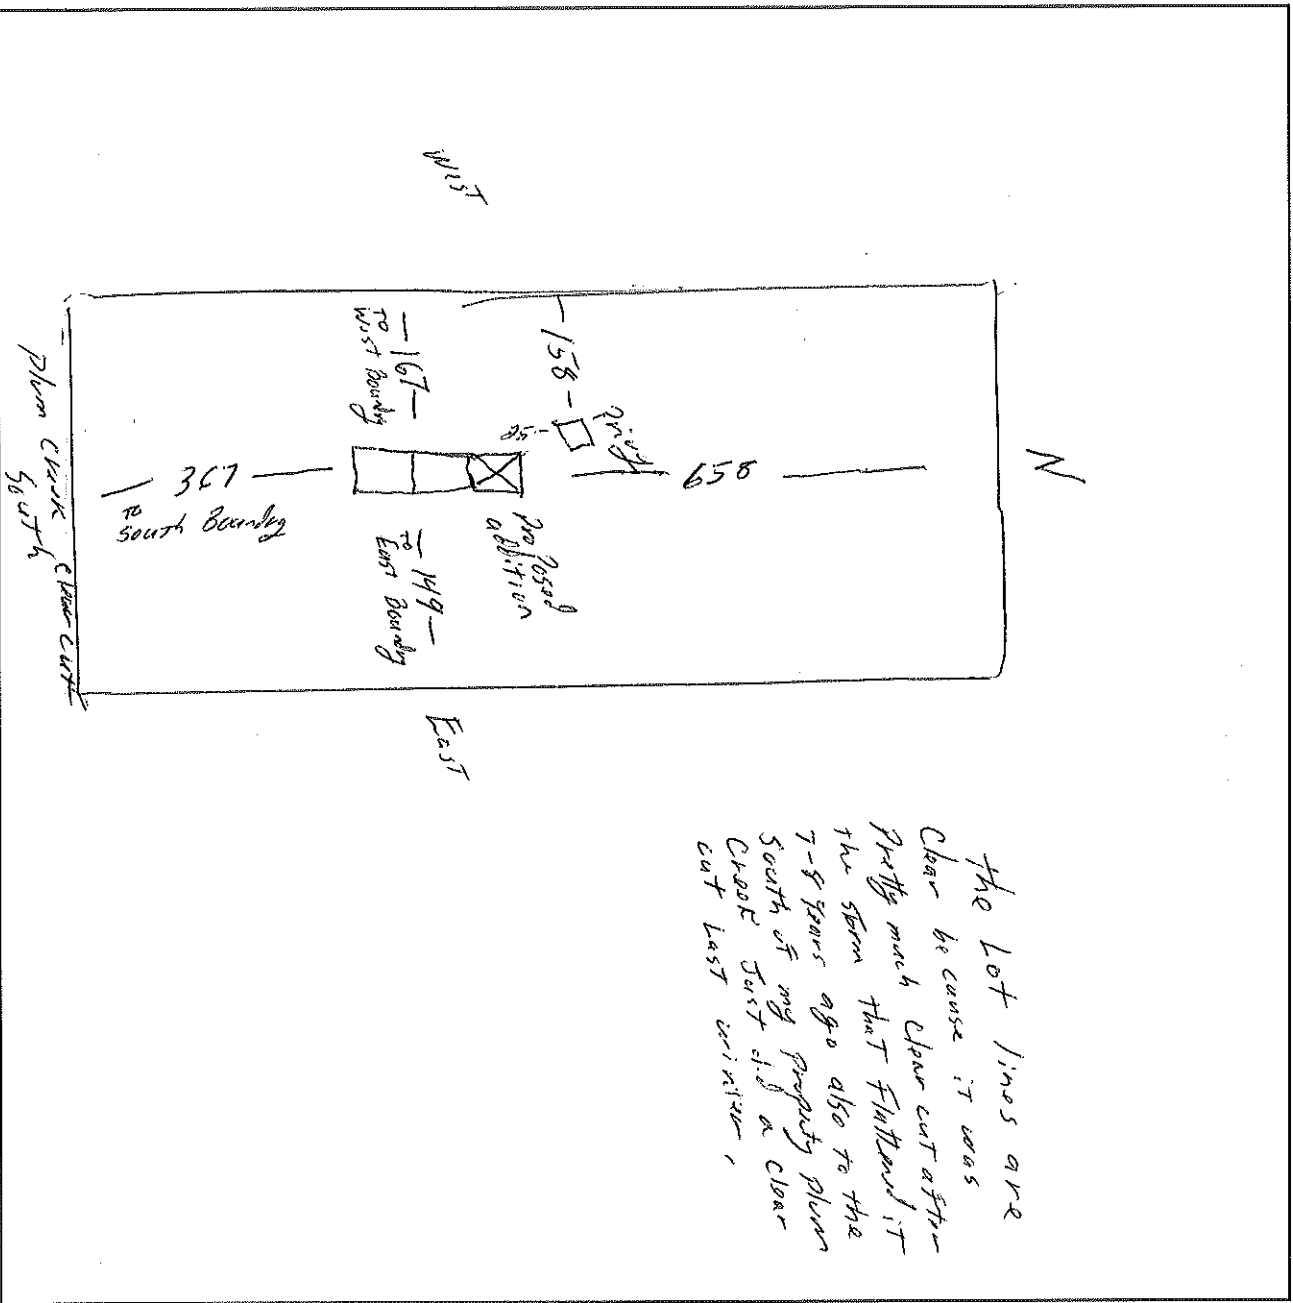 N
West
East
—158—
Privy
25-
— 658 —
— 167 —
TO
West Boundry
— 149 —
TO
East Boundry
Proposed
addition
— 367 —
TO
South Boundry
Plum Creek clear cut
South
The Lot lines are
Clear because it was
Pretty much clear cut after
the storm that Flattened it
7-8 years ago also to the
South of my Property Plum
Creek Just did a clear
cut Last winter.